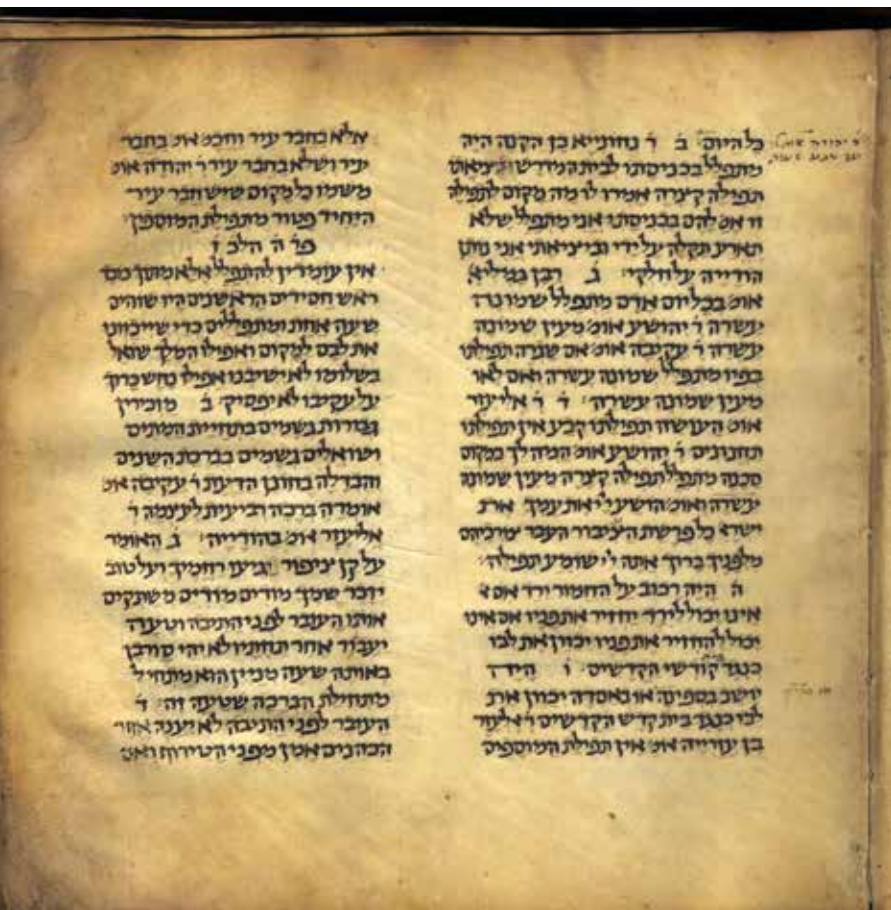 כל היום ב ר נחונייא בן הקנה היה
מתפלל בכניסתו לבית המדרש וביציאתו
תפילה קצרה אמרו לו מה מקום לתפילה
זו אמ להם בכניסתי אני מתפלל שלא
תארע תקלה על ידי וביציאתי אני נותן
הודייה על חלקי ג רבן גמליא
אומ בכל יום אדם מתפלל שמונה
עשרה ר יהושע אומ מעין שמונה
עשרה ר עקיבה אומ אם שגרה תפילתו
בפיו מתפלל שמונה עשרה ואם לאו
מעין שמונה עשרה ד ר אליעזר
אומ העושה תפילתו קבע אין תפילתו
תחנונים ר יהושע אומ המהלך במקום
סכנה מתפלל תפילה קצרה מעין שמונה
עשרה ואומ הושע יי את עמך את
ישרא כל פרשת הציבור העבר צרכיהם
מלפניך ברוך אתה יי שומע תפילה
ה היה רכוב על החמור ירד אם
אינו יכול לירד יחזיר את פניו אם אינו
יכול להחזיר את פניו יכוון את לבו
כנגד קודשי הקדשים ו היה
יושב בספינה או באסדה יכוון את
לבו כנגד בית קדש הקדשים ר אלעזר
בן עזרייה אומ אין תפילת המוספים
אלא בחבר עיר וחכמ אומ בחבר
עיר ושלא בחבר עיר ר יהודה אומ
משמו כל מקום שיש חבר עיר
היחיד פטור מתפילת המוספין
פר ה הלכ ז
אין עומדין להתפלל אלא מתוך כובד
ראש חסידים הראשנים היו שוהים
שעה אחת ומתפללים כדי שייכוונו
את לבם למקום ואפילו המלך שואל
בשלומו לא ישיבנו אפילו נחש כרוך
על עקיבו לא יפסיק ב מזכירין
גבורות גשמים בתחיית המתים
ושואלים גשמים בברכת השנים
והבדלה בחונן הדעת ר עקיבה אומ
אומרה ברכה רביעית לעצמה ר
אליעזר אומ בהודייה ג האומר
על קן ציפור יגיעו רחמיך ועל טוב
יזכר שמך מודים מודים משתקים
אותו העובר לפני התיבה וטעה
יעבור אחר תחתיו ולא יהי סורבן
באותה שעה מנין הוא מתחיל
מתחילת הברכה שטעה זה ד
העובר לפני התיבה לא יענה אחר
הכהנים אמן מפני הטירוף ואם